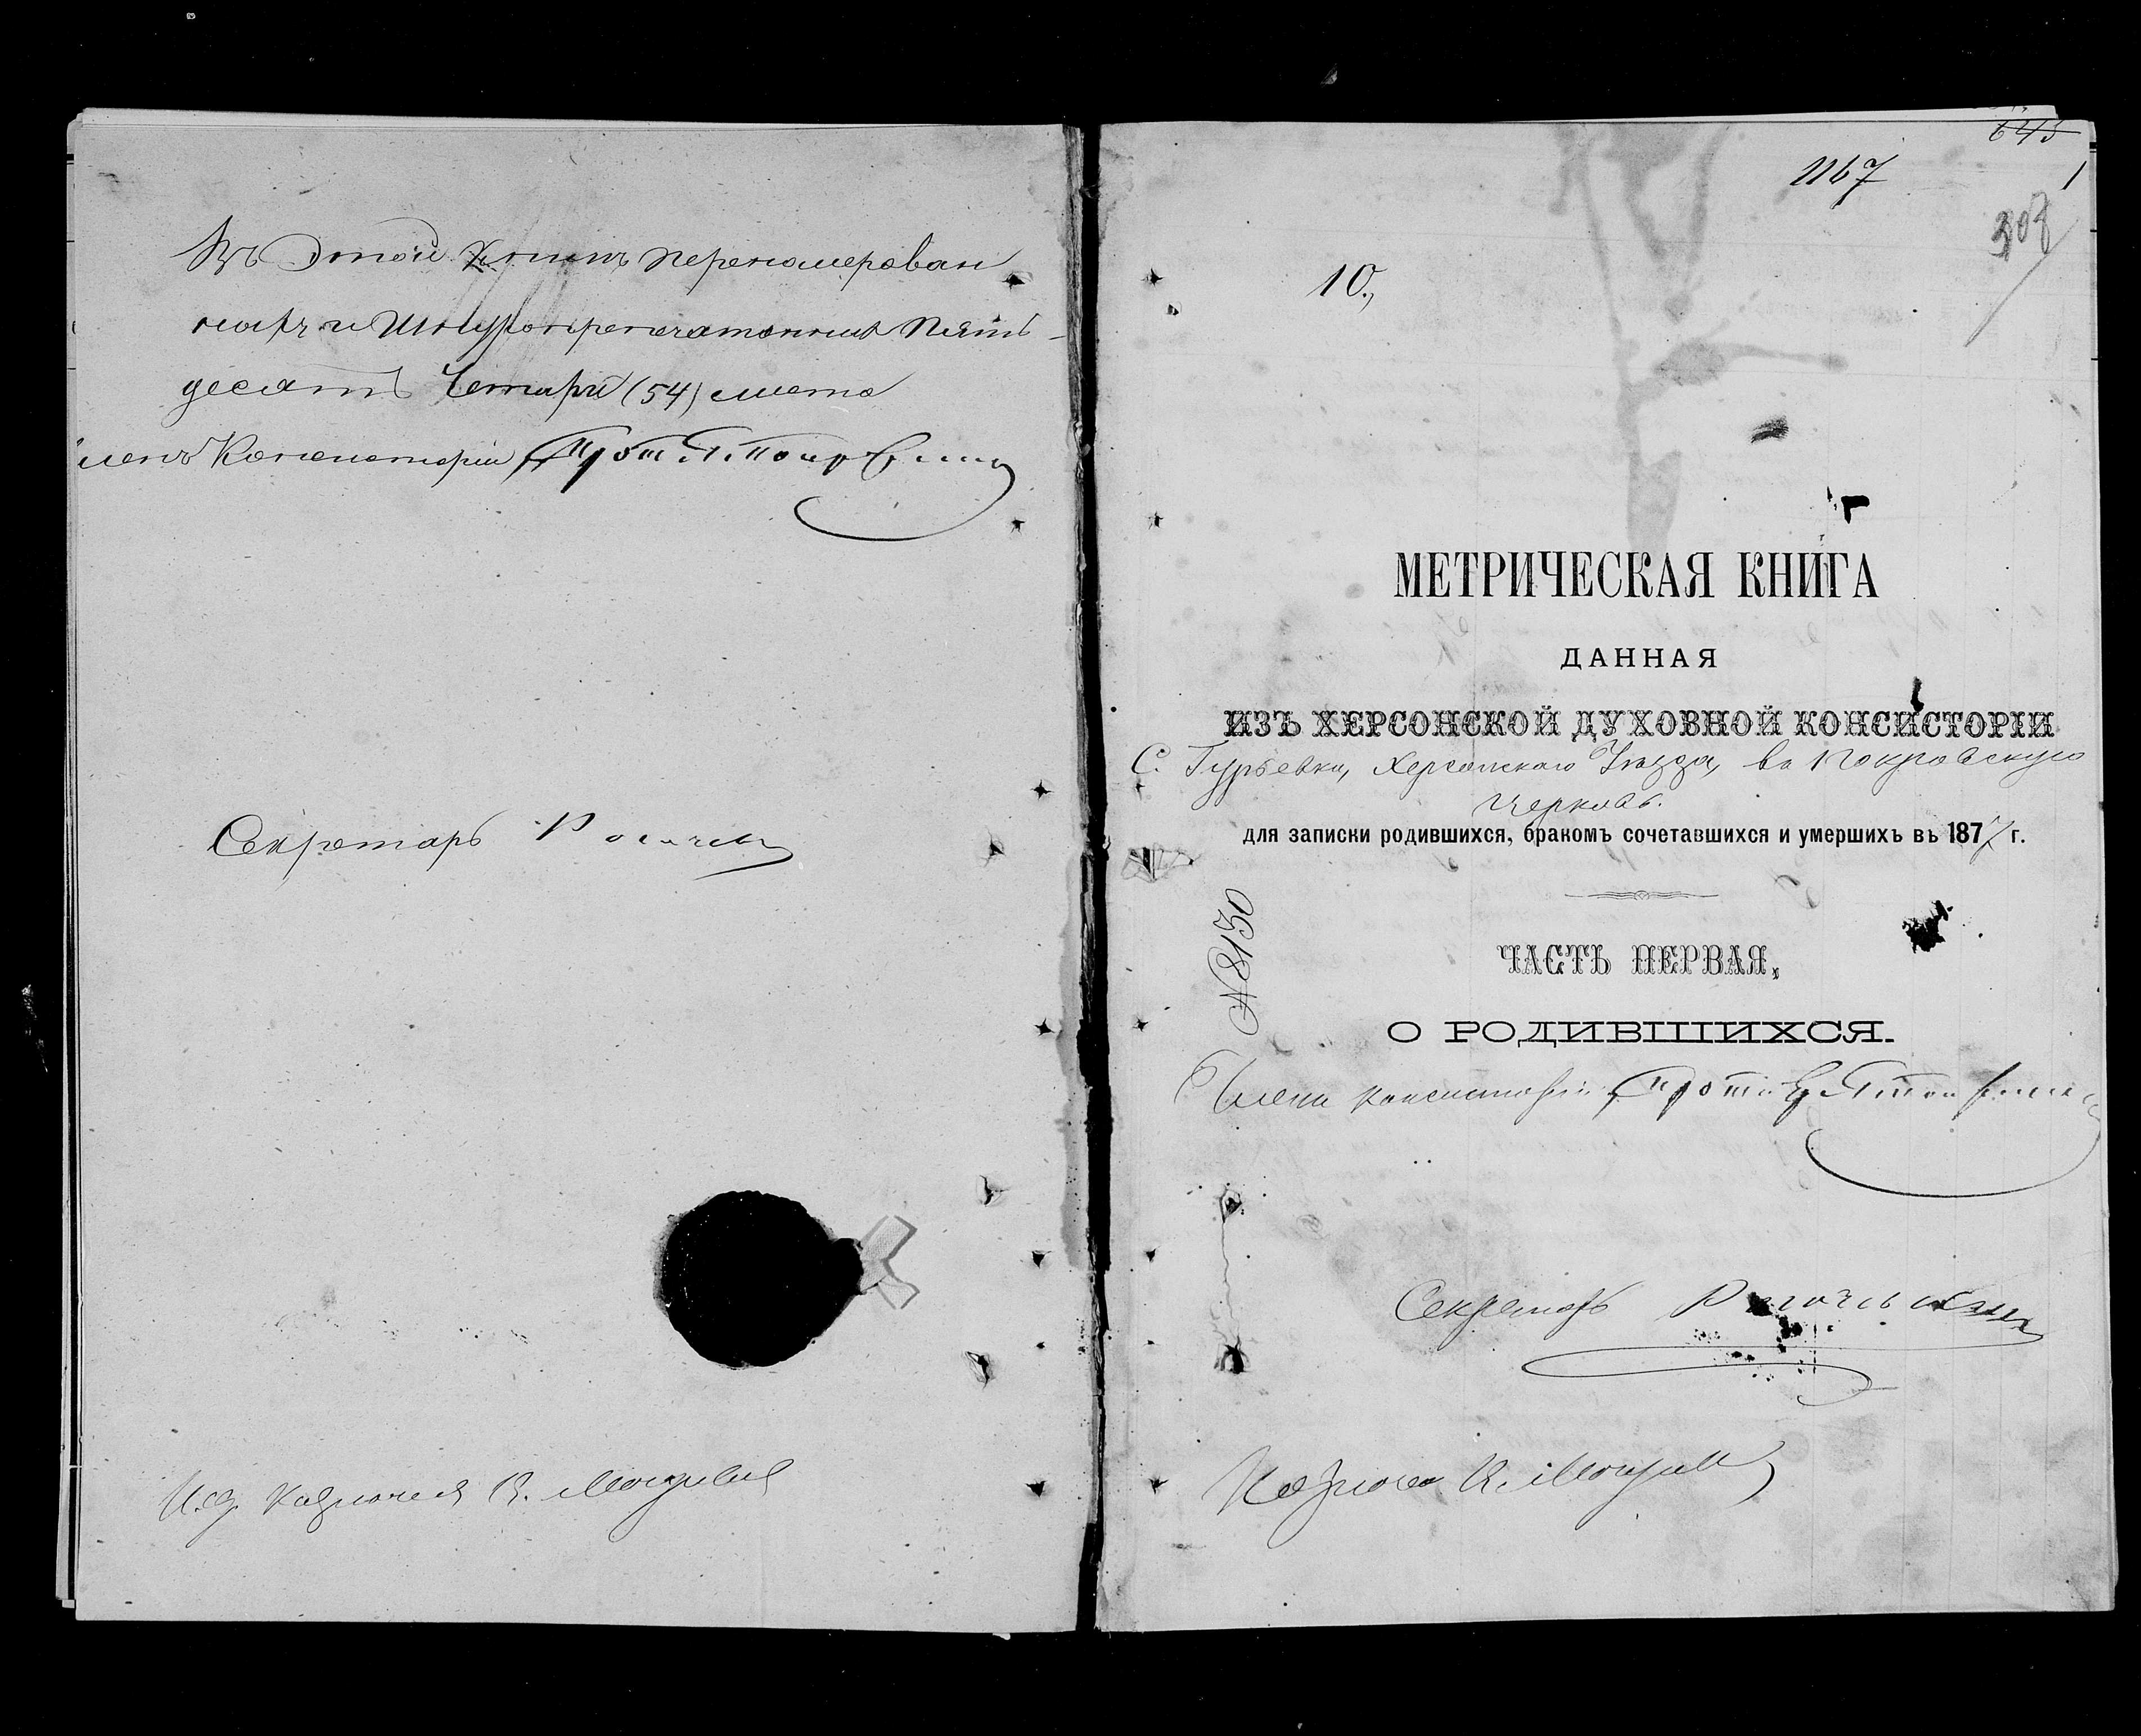 Въ этой книгѣ перенумерован
ныхъ и шнуропрепечатанныхъ пять-
десятъ четыри (54) листа
Членъ Консисторіи Прот.
Секретарь
И. д. Казначея В.
645
1167
1
308
10.,
МЕТРИЧЕСКАЯ КНИГА
ДАННАЯ
ИЗЪ ХЕРСОНСКОЙ ДУХОВНОЙ КОНСИСТОРІИ
С. Гурьевки, Херсонскаго Уѣзда, въ Покровскую
Церковь.
для записки родившихся, бракомъ сочетавшихся и умершихъ въ 1877 г.
№ 8130
ЧАСТЬ ПЕРВАЯ,
О РОДИВШИХСЯ.
Членъ Консисторіи Прот.
Секретарь
Казначей В.